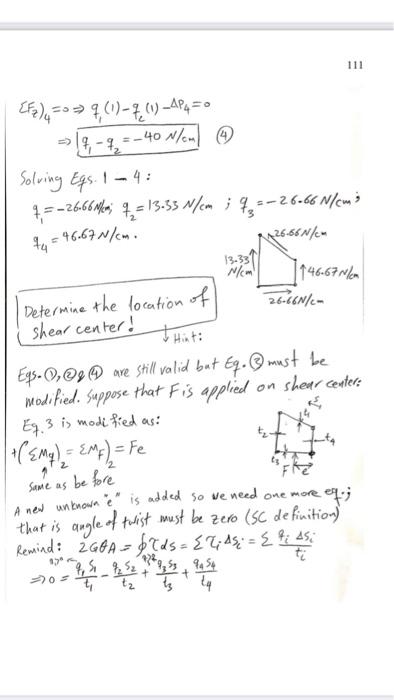 111
ΣFz)4 = 0 ⇒ q1(1) - q2(1) - ΔP4 = 0
⇒ q1 - q2 = -40 N/cm (4)
Solving Eqs. 1 – 4:
q1 = -26.66 N/cm; q2 = 13.33 N/cm ; q3 = -26.66 N/cm;
q4 = 46.67 N/cm.
26.66 N/cm
13.33 N/cm
46.67 N/cm
26.66 N/cm
Determine the location of
shear center!
Hint:
Eqs. (1), (2) & (4) are still valid but Eq. (3) must be
modified. Suppose that F is applied on shear center:
Eq. 3 is modified as:
+(ΣMq)2 = ΣMF)2 = Fe
same as before
t2 t4
t3
F e
A new unknown "e" is added so we need one more eq.;
that is angle of twist must be zero (SC definition)
Remind: 2GθA = ∮τds = Στi Δsi = Σ qi Δsi / ti
⇒ 0 = q1 S1 / t1 - q2 S2 / t2 + q3 S3 / t3 + q4 S4 / t4